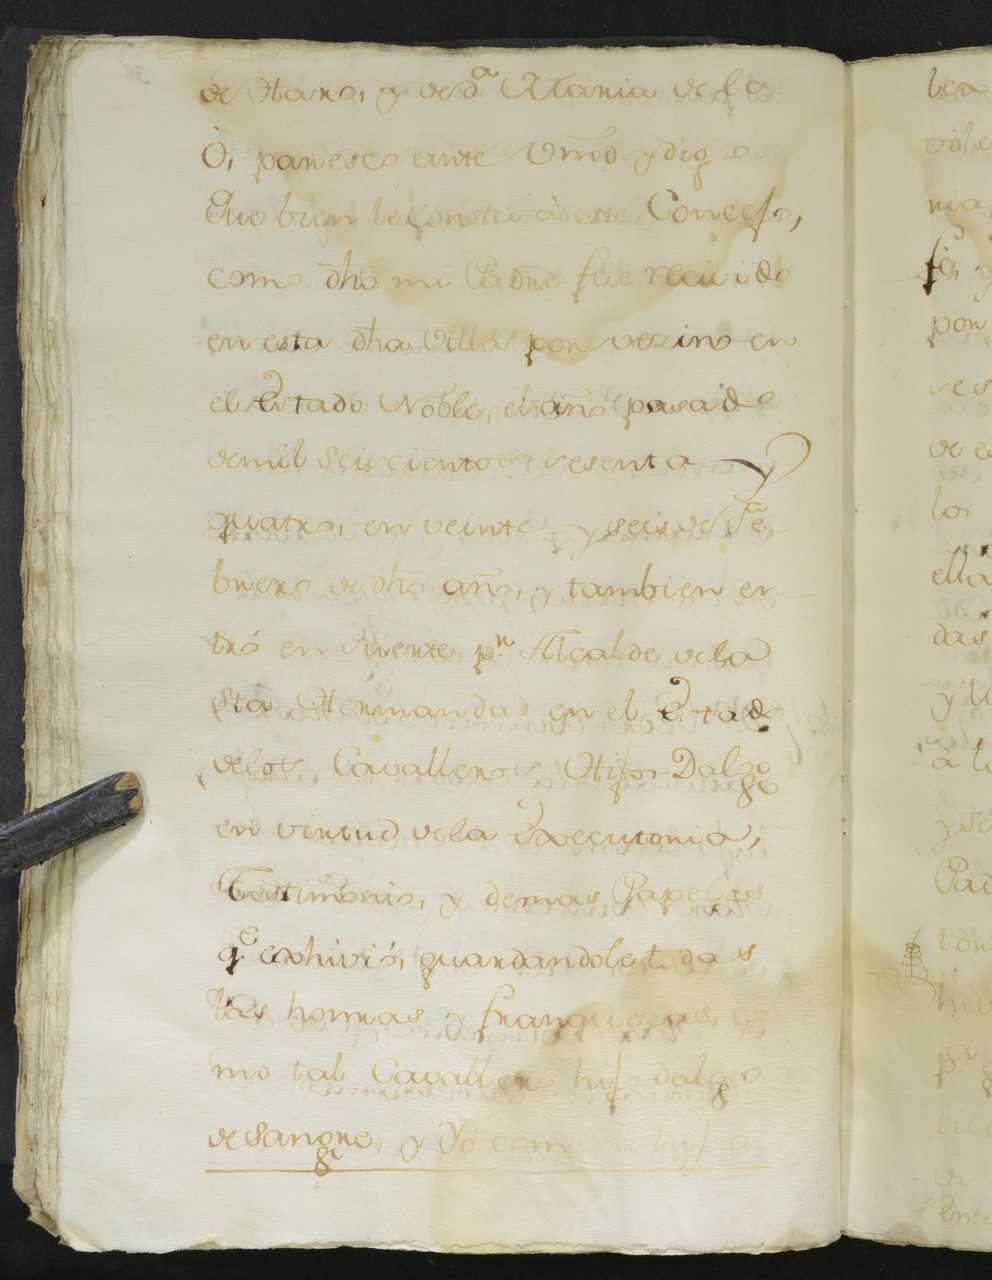 de Otaro, y de d.ª Maria de la
Ò, paresco ante Vmd. y digo
Que bien le consta à este Consejo,
como dho mi Padre fue recivido
en esta dha Villa por vezino en
el Estado Noble, el año pasado
de mil seiscientos sesenta y
quatro, en veinte y seis de Fe
brero de dho año, y tambien en
tró en suerte p.r Alcalde de la
Sta Hermandad en el Estado
de los Cavalleros Hijos-Dalgo
en virtud de la Executoria,
Testimonio, y demas Papeles
q.e exhivió, guardandole todas
las honras y franquezas, co
mo tal Cavallero hijo dalgo
de sangre, y Yó como su hijo
lea
ma,
fe, y
por
de e
los
ella
das
y l
a l
Pad